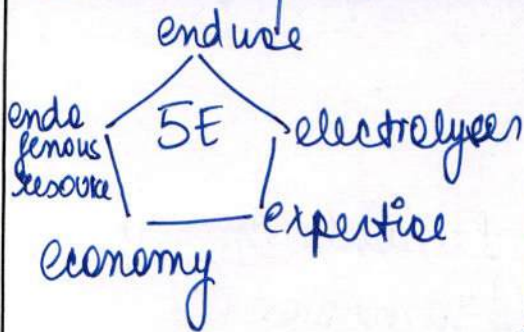 end use
endo
genous
resource
5E
electrolyser
expertise
economy